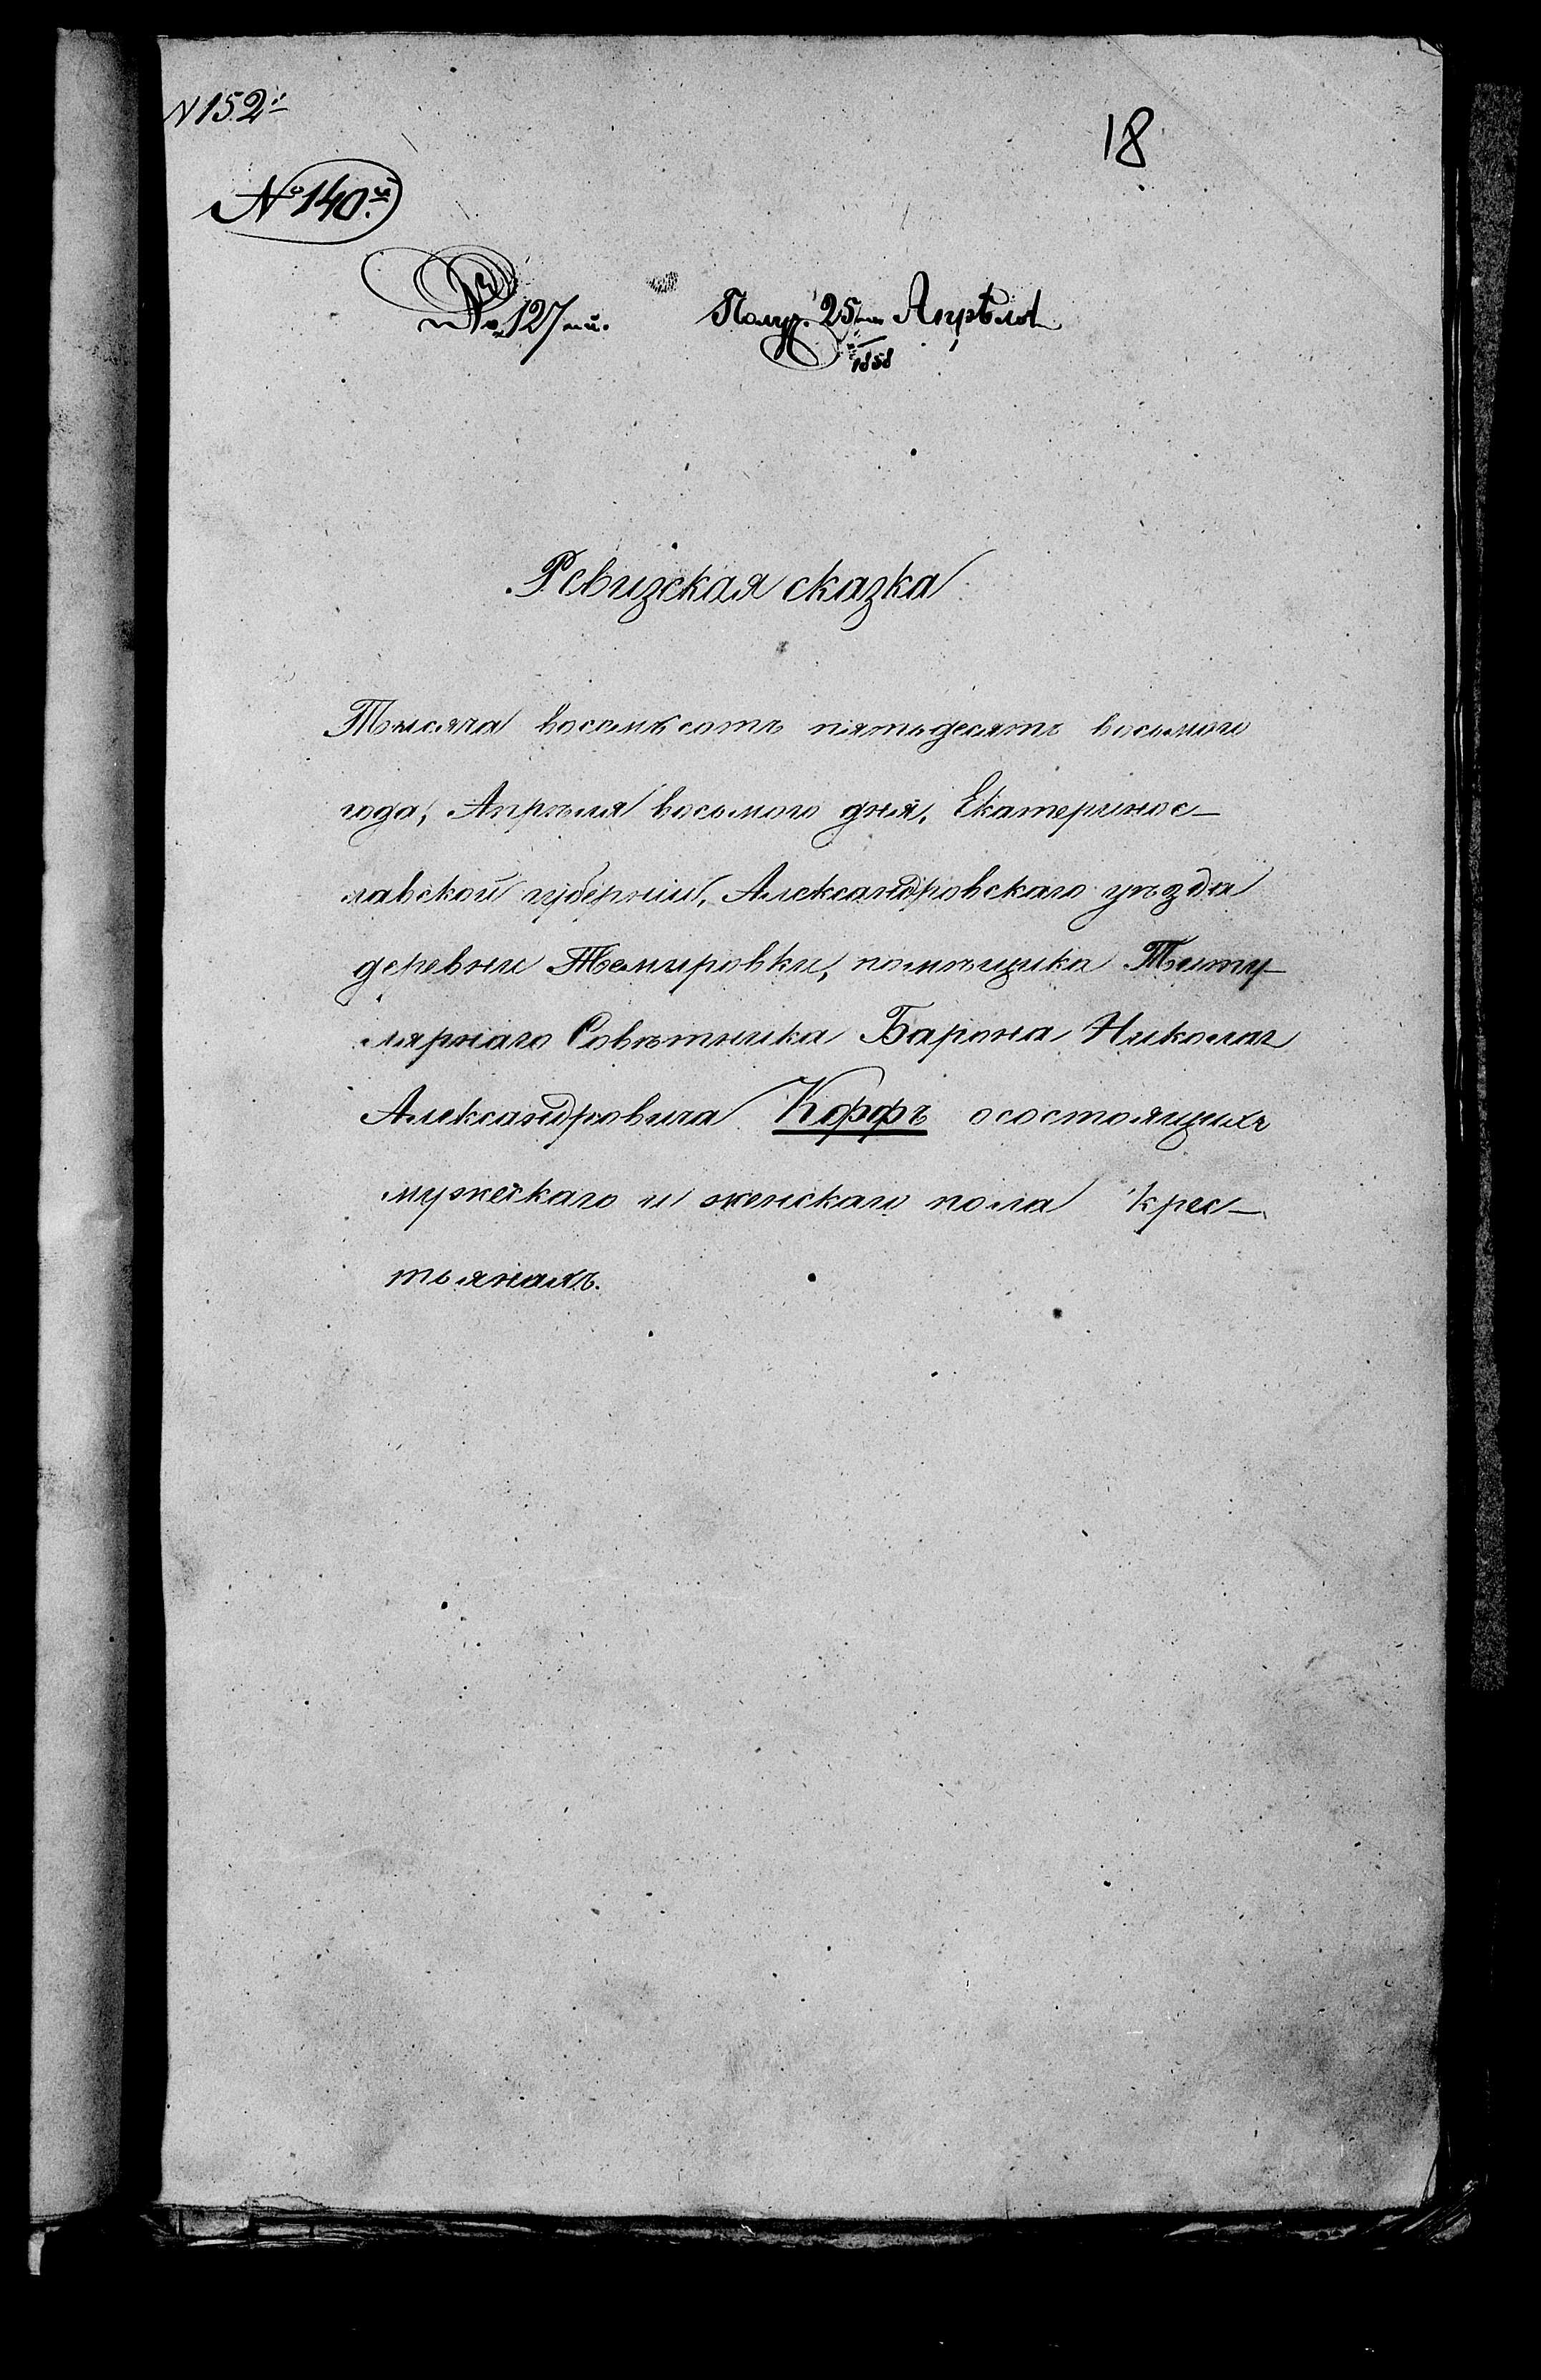 N 152й
18
№ 140й
№ 127й.
Получ. 25го Апрѣля
1858
Ревизская сказка
Тысяча восемьсотъ пятьдесятъ восьмого
года, Апрѣля восьмого дня, Екатеринос-
лавской губерніи, Александровскаго уѣзда
деревни Темировки, помѣщика Титу-
лярнаго Совѣтника Барона Николая
Александровича Корфъ осостоящихъ
мужескаго и женскаго пола крес-
тьянахъ.